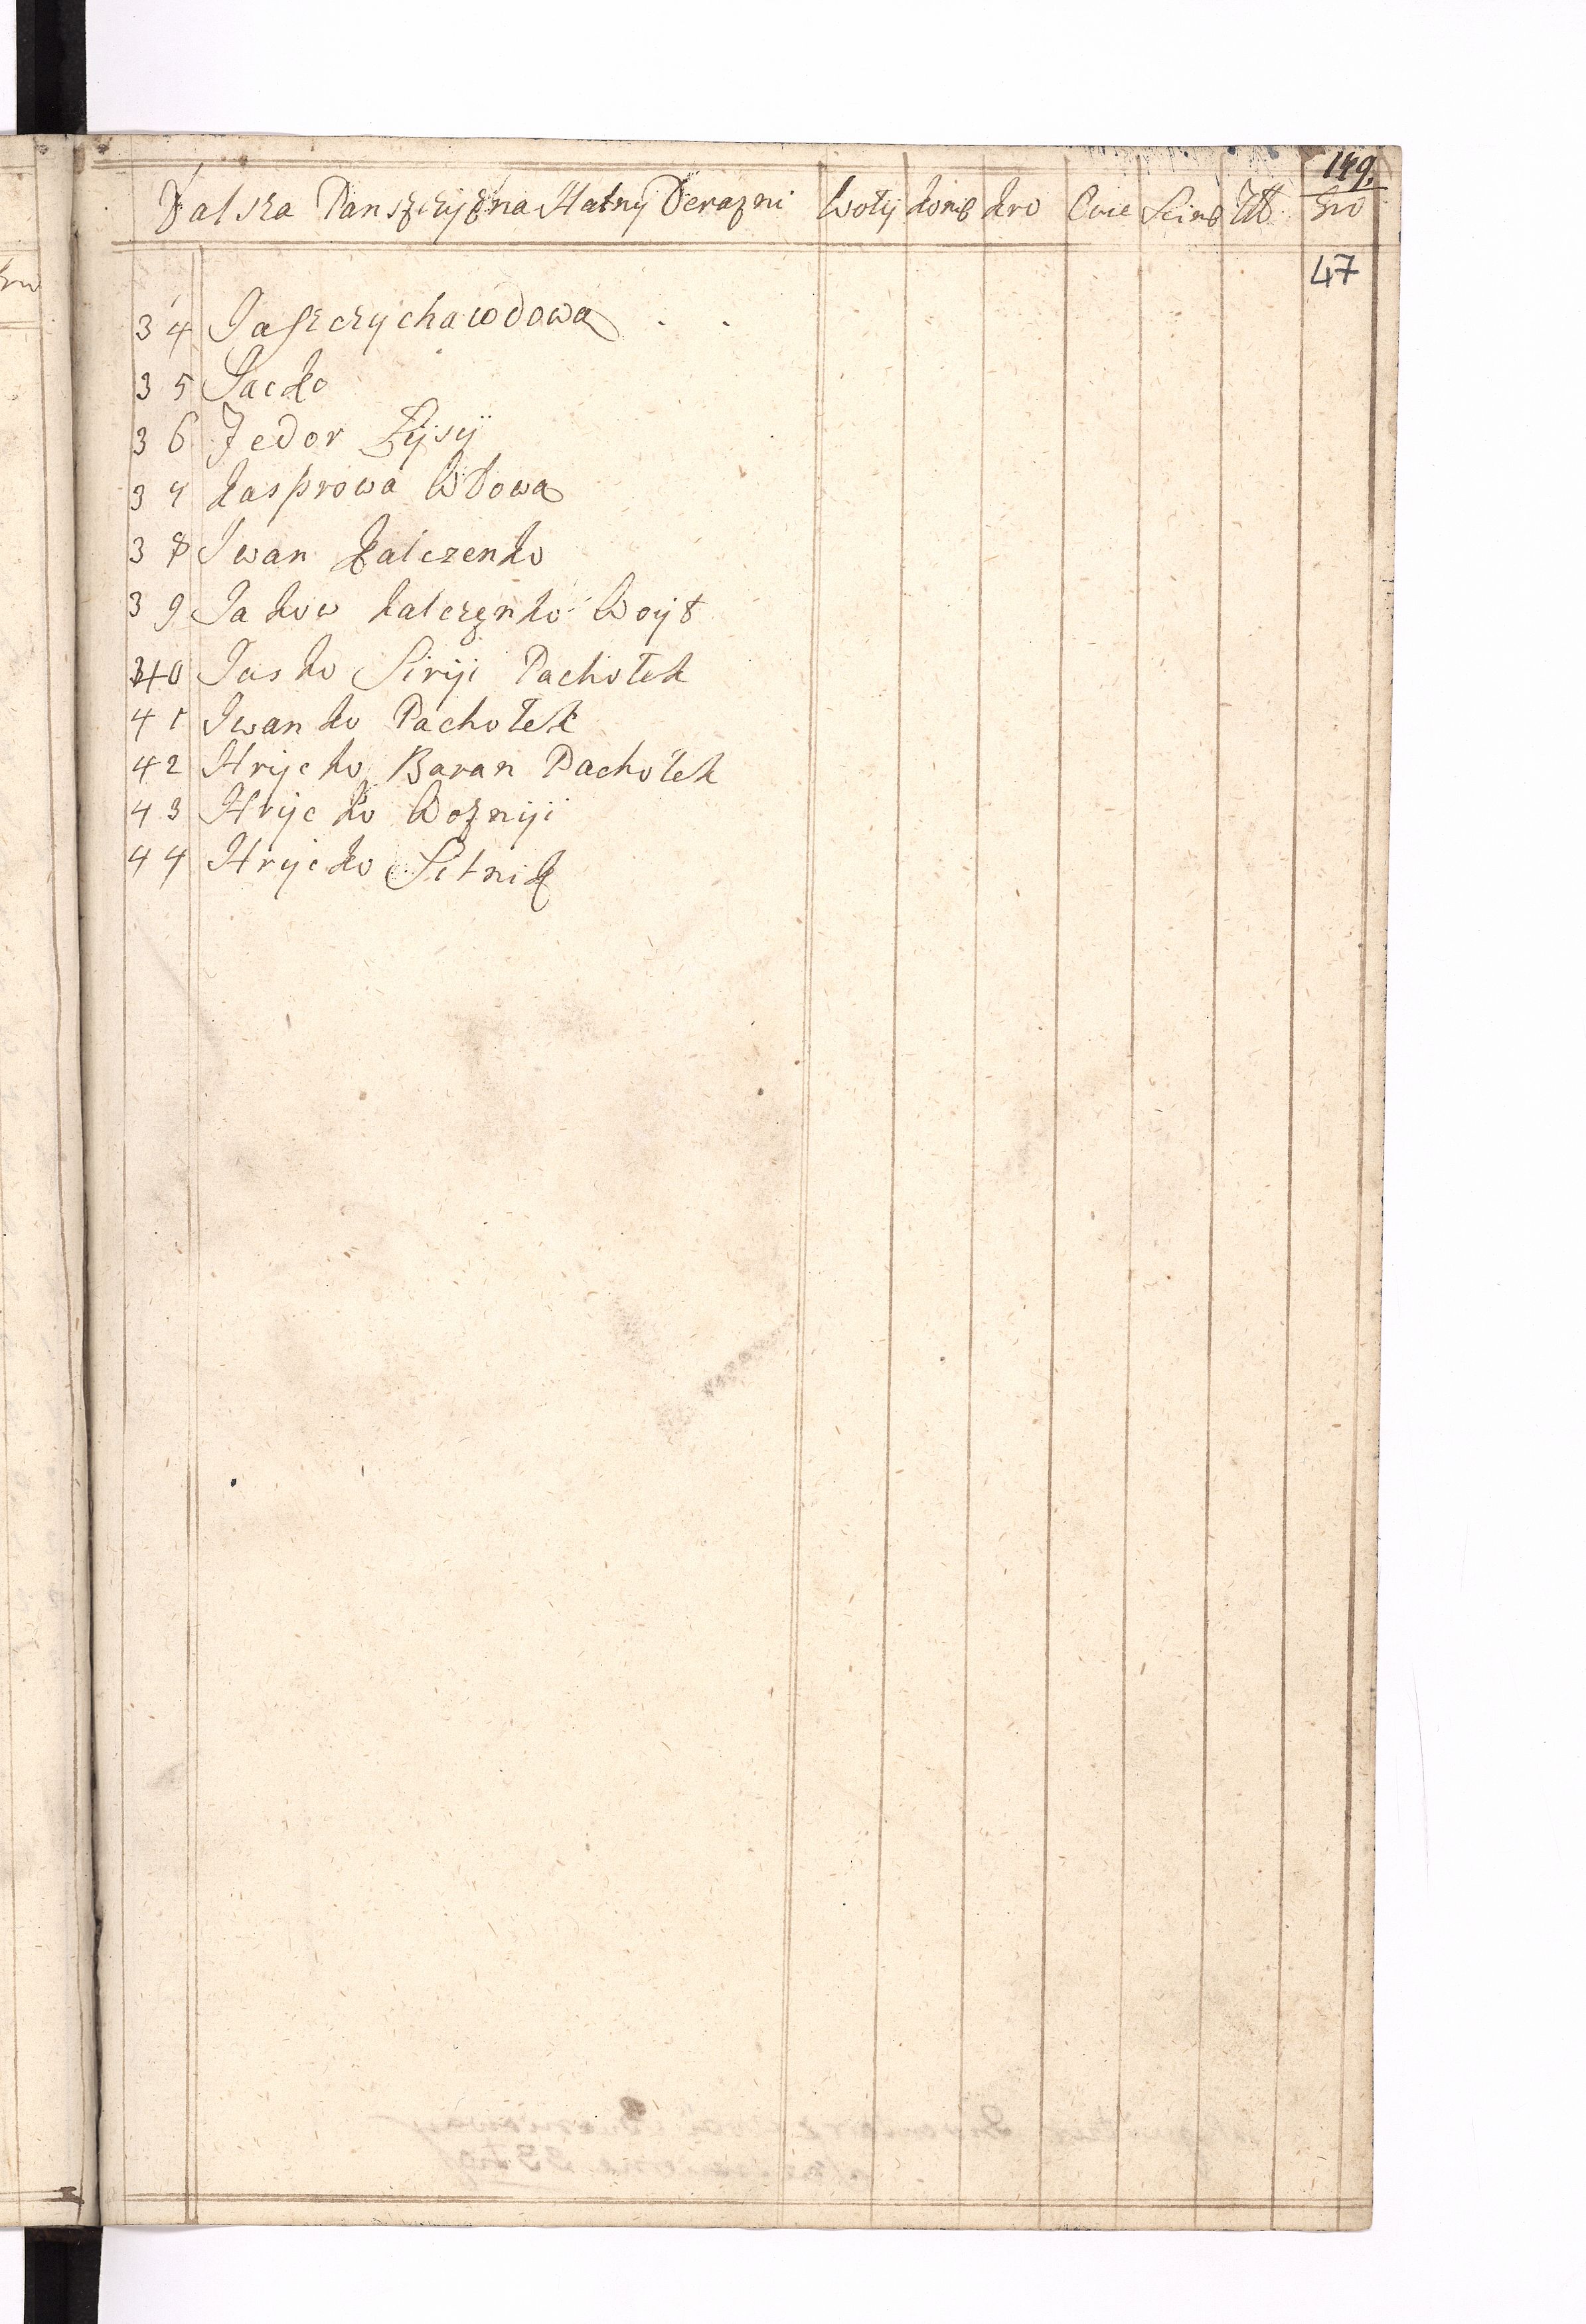 149.
Dalsza Panszczyzna Hatny Derazni Woły koni kro Owie Swin Uli
47
34 Jaszczycha wdowa
35 Jacko
36 Fedor Łysy
37 Kasprowa Wdowa
38 Iwan Kalczenko
39 Jakow Kalczenko Woyt
40 Jasko Siryi Pachołek
41 Iwanko Pachołek
42 Hrycko Baran Pachołek
43 Hrycko Woznyi
44 Hrycko Sitnik